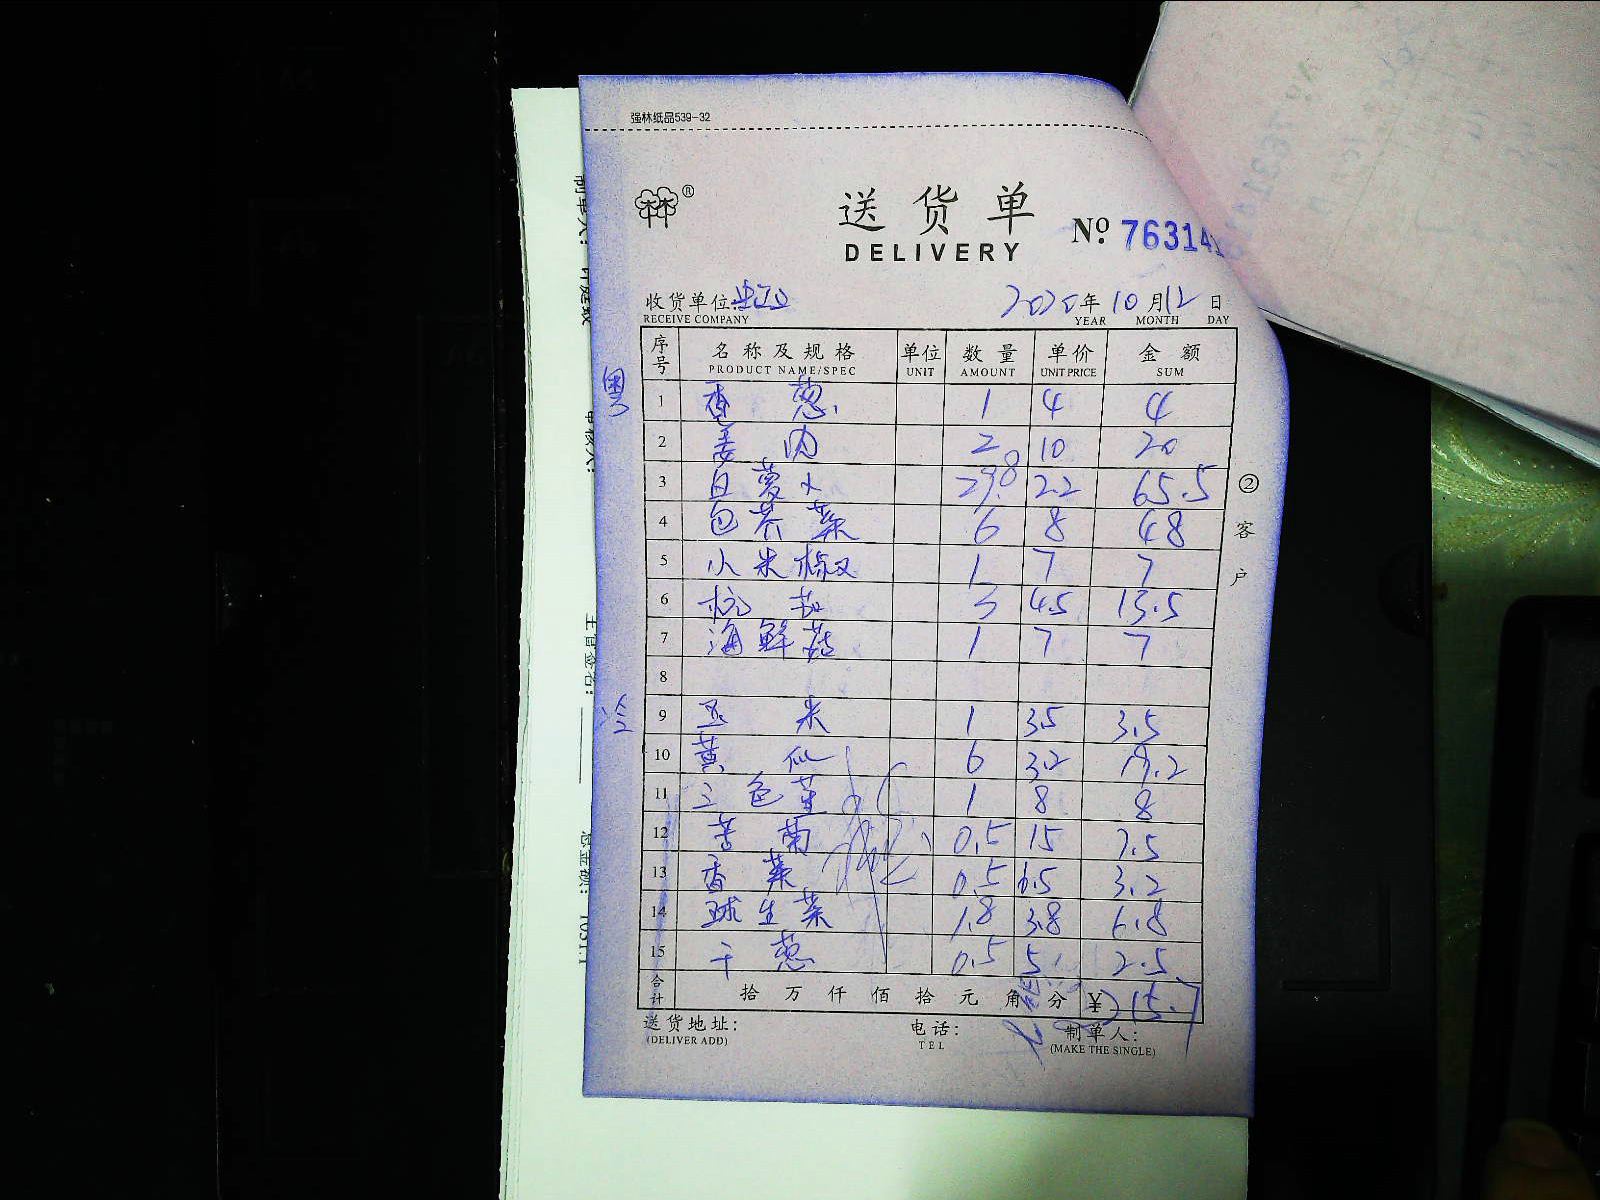 强林纸品539-32
林®
送货单
DELIVERY
№ 76314
收货单位: 2020年10月12日
RECEIVE COMPANY YEAR MONTH DAY
序号 名称及规格 单位 数量 单价 金额
PRODUCT NAME/SPEC UNIT AMOUNT UNIT PRICE SUM
粤
1 香葱 1 4 4
2 姜肉 2 10 20
3 白萝卜 29.8 2.2 65.5
4 包芥菜 6 8 48
5 小米椒 1 7 7
6 杭茄 3 4.5 13.5
7 海鲜菇 1 7 7
8
9 玉米 1 3.5 3.5
10 黄瓜 6 3.2 19.2
11 三色堇 1 8 8
12 苦菊 0.5 15 7.5
13 香菜 0.5 6.5 3.2
14 球生菜 1.8 3.8 6.8
15 干葱 0.5 5 2.5
合计 拾万仟佰拾元角分 ¥215.7
②客户
送货地址: 电话: 制单人:
(DELIVER ADD) TEL (MAKE THE SINGLE)
制单人:
审核人:
主管签名:
总金额: